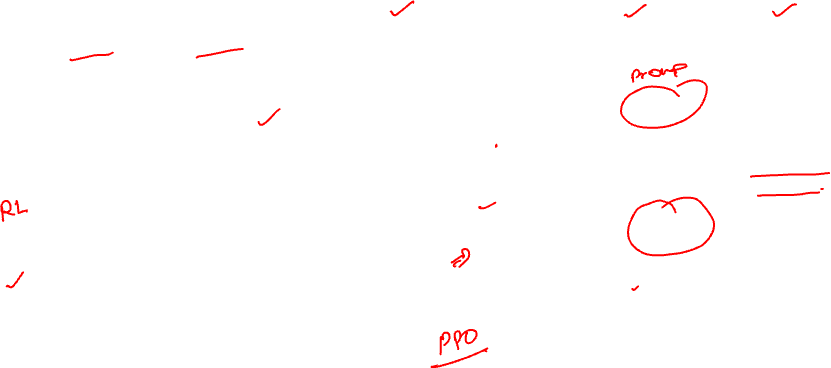 Promp
RL
PPO